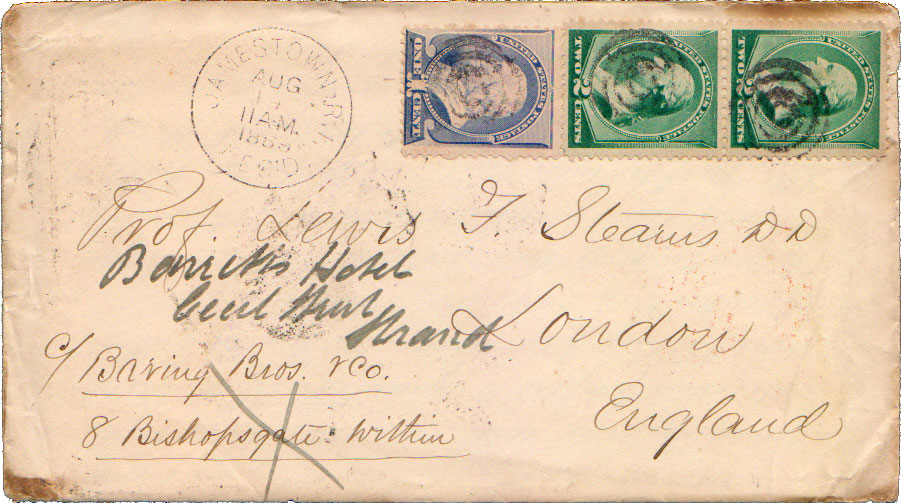 JAMESTOWN, R.I.
AUG
11 A.M.
REC'D.
UNITED STATES POSTAGE
ONE 1 CENT
UNITED STATES POSTAGE
TWO 2 CENTS
UNITED STATES POSTAGE
TWO 2 CENTS
Prof. Lewis F. Stearns D D
Barretts Hotel
Cecil Street
Strand
London
c/ Baring Bros. & Co.
8 Bishopsgate Within
England